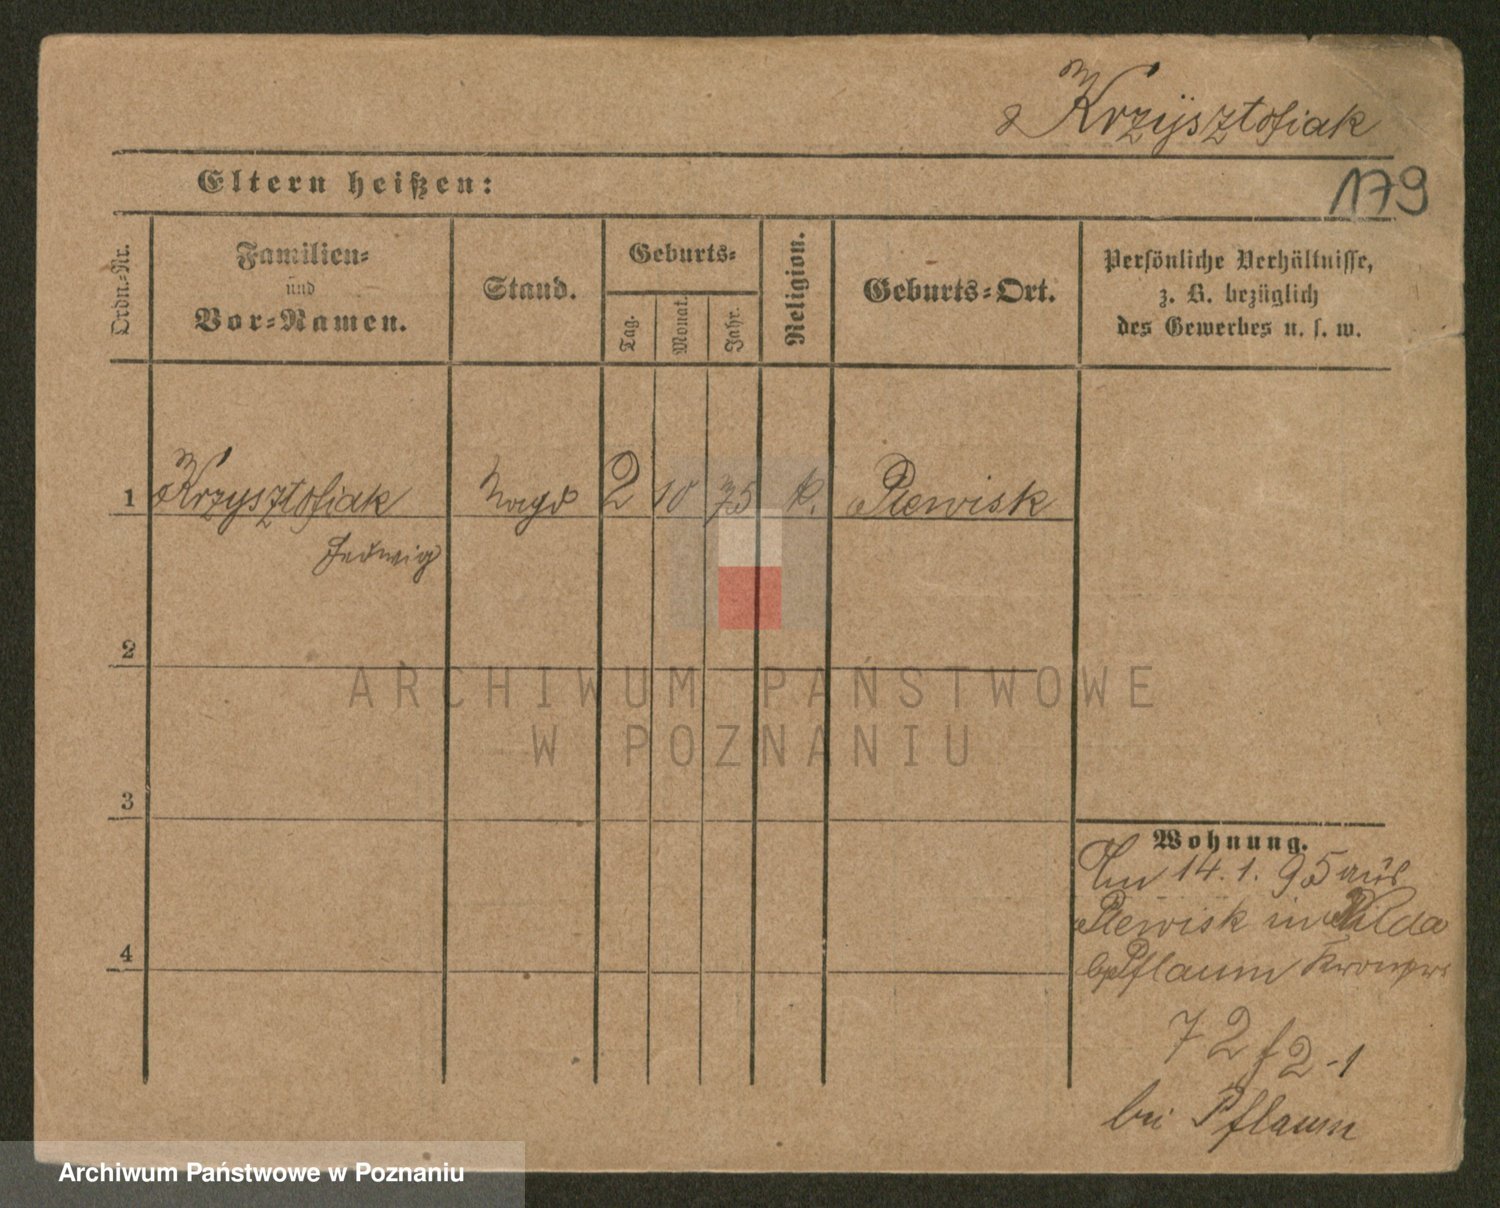 Krzÿsztofiak
179
Eltern heißen:
Ordn.-Nr.
Familien-
und
Vor-Namen.
Stand.
Geburts-
Tag.
Monat.
Jahr.
Religion.
Geburts-Ort.
Persönliche Verhältnisse,
z. B. bezüglich
des Gewerbes u. s. w.
1 Krzysztofiak Magd 2 10 75 k. Plewisk
Hedwig
2
3
4
Wohnung.
Am 14.1.95 aus
Plewisk in Wilda
b/Pflaum
72
bei Pflaum
ARCHIWUM PAŃSTWOWE
W POZNANIU
Archiwum Państwowe w Poznaniu